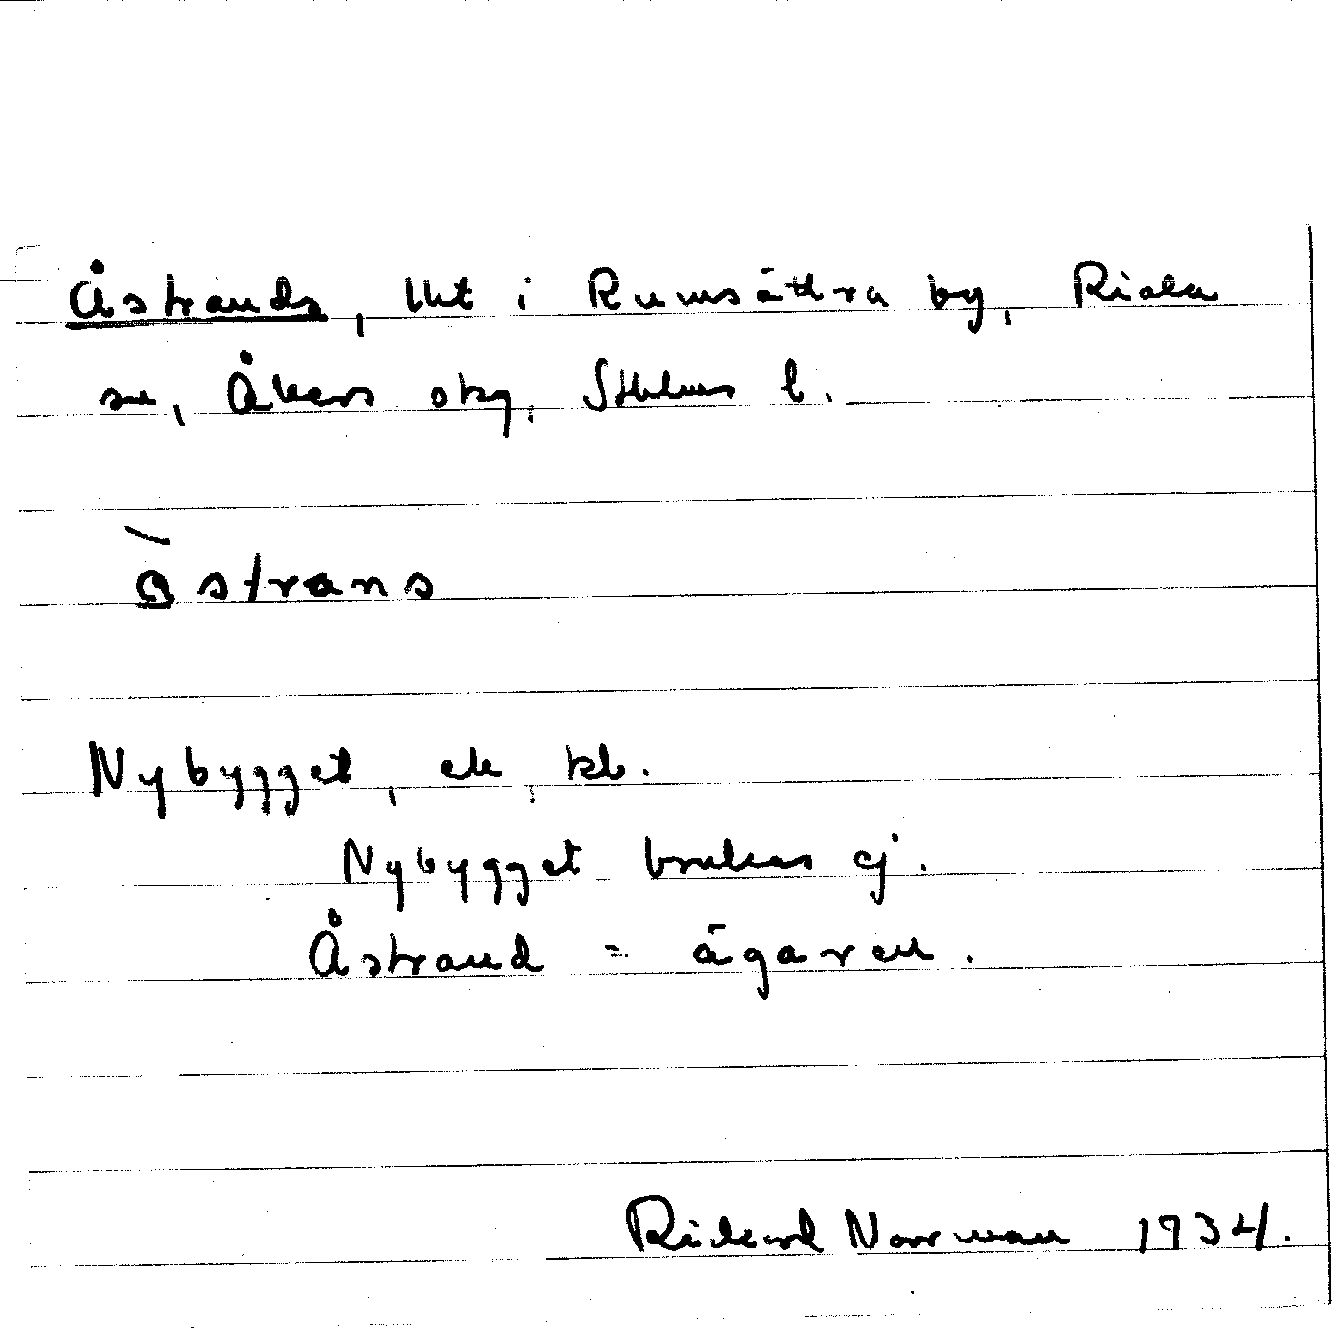 Åstrands, lht i Rumsättra by, Riala
sn, Åkers skg, Sthlms l.
åstrans
Nybygget, ek kb.
Nybygget brukas ej.
Åstrand = ägaren.
Rickard Norrman 1934.